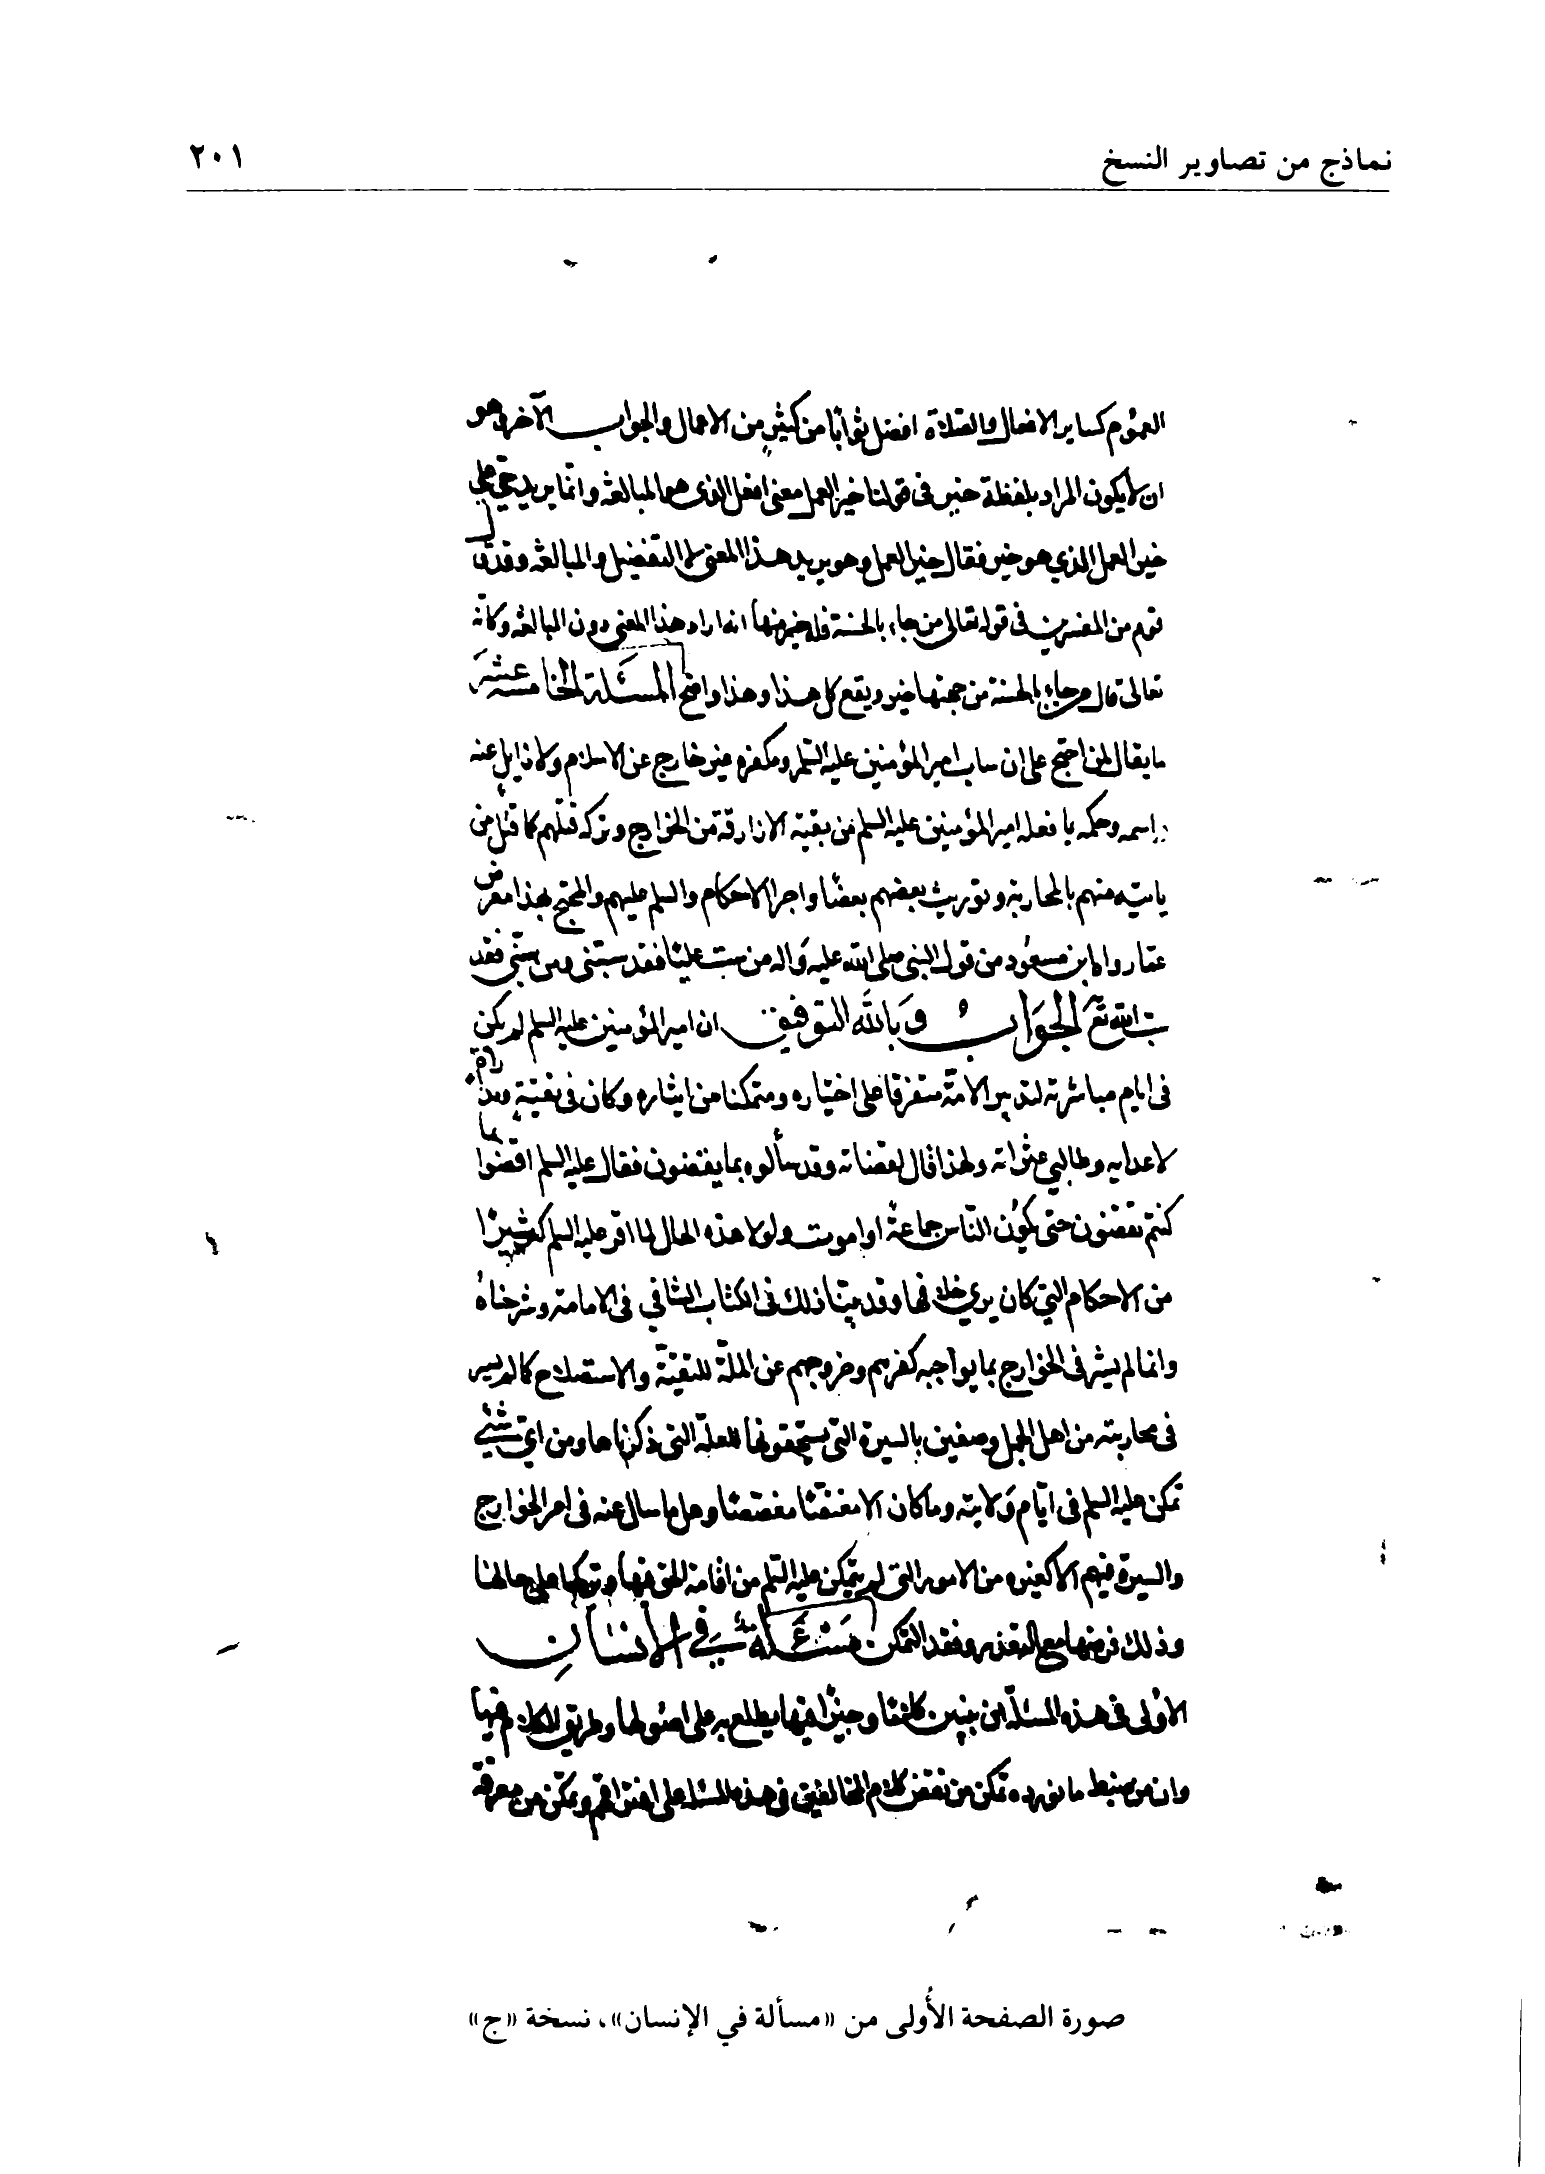 نماذج من تصاوير النسخ ٢٠١
العموم كساير الافعال والصلاة افضل ثوابًا من كثيرٍ من الاعمال والجواب الآخر وهو
ان لا يكون المراد بلفظة خير في قولنا خير العمل معنى افعل الذى هو المبالغة وانّما يريد حيّ على
خير العمل الذي هو خير فقال خير العمل وهو يريد هذا المعنى لا التفضيل والمبالغة وقد
قوم من المفسرين في قوله تعالى من جاء بالحسنة فله خير منها انه اراد هذا المعنى دون المبالغة وكانّه
تعالى قال من جاء بالحسنة من جهتها خير ويقع كل هذا وهذا واضح المسئلة الخامسة عشَر
ما يقال لمن احتج على ان ساب امير المؤمنين عليه السّلم ومكفره غير خارج عن الاسلام ولا زايلٍ عنه
اسمه وحكمه بما فعله امير المؤمنين عليه السلم من بقية الازارقة من الخوارج وتركه قتلهم كما قتل من
منهم بالمحاربة وتوريث بعضهم بعضًا واجرا الاحكام والسلم عليهم والمحتج بهذا معرض
عمّا رواه ابن مسعُود من قول النبي صلى الله عليه وَاله من سب عليّا فقد سبّنى ومن سبّنى فقد
سب الله تعَ الجوَابُ وَبالله التوفيق ان امير المؤمنين عليه السلم لم يكن
في ايام مباشرته لتدبير الامّة متفرقا على اختياره ومتمكنا من ايثاره وكان في تقيّةٍ
لاعدايه وطالبي عثراته ولهذا قال لقضاته وقد سألوه بما يقضون فقال عليه السلم اقضوا بما
كنتم تقضون حتى يكُون النّاس جماعةً او اموت ولولا هذه الحال لما اقر عليه السلم كثيرًا
من الاحكام التي كان يرى خلافها وقد بيّنا ذلك في الكتاب الشافي في الامامة وشرحناهُ
وانما لم يسر في الخوارج بما يوآجبه كفرهم وخروجهم عن الملّة للتقيّة والاستصلاح كما لم يسر
في محاربته من اهل الجمل وصفين بالسيرة التي يستحقونها للعلّة التي ذكرناها ومن اي شيْءٍ
تمكن عليه السلم في ايّام وَلايته وما كان الا مغصّصا وهل ما سال عنه في امر الخوارج
والسيرة فيهم الا كغيره من الامور التي لم يتمكن عليه السّلم من اقامة الحق فيها وتركها على حالها
وذلك فرضها مع التعذر وفقد التمكن مَسْئَلة في الأنسَانِ
الاوْلى في هذه المسئلة ان نبين كلامًا وجيزًا فيها يطلع به على اصُولها وطريق الكلام فيها
وان من ضبط ما نورده تمكن من نقض كلام المخالفين في هذه المسئلة على افتراقهم وتمكّن من معرفة
صورة الصفحة الأُولى من «مسألة في الإنسان»، نسخة «ج»